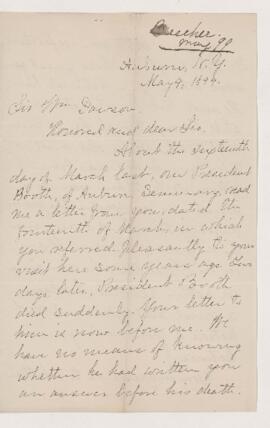 Beecher
May 99
Auburn, N.Y.
May 9, 1899.
Sir Wm Dawson
Honored and dear Sir.
About the sixteenth
day of March last, our President
Booth, of Auburn Seminary, read
me a letter from you, dated the
fourteenth of March, in which
you referred pleasantly to your
visit here some years ago. Two
days later, President Booth
died suddenly. Your letter to
him is now before me. We
have no means of knowing
whether he had written you
an answer before his death.